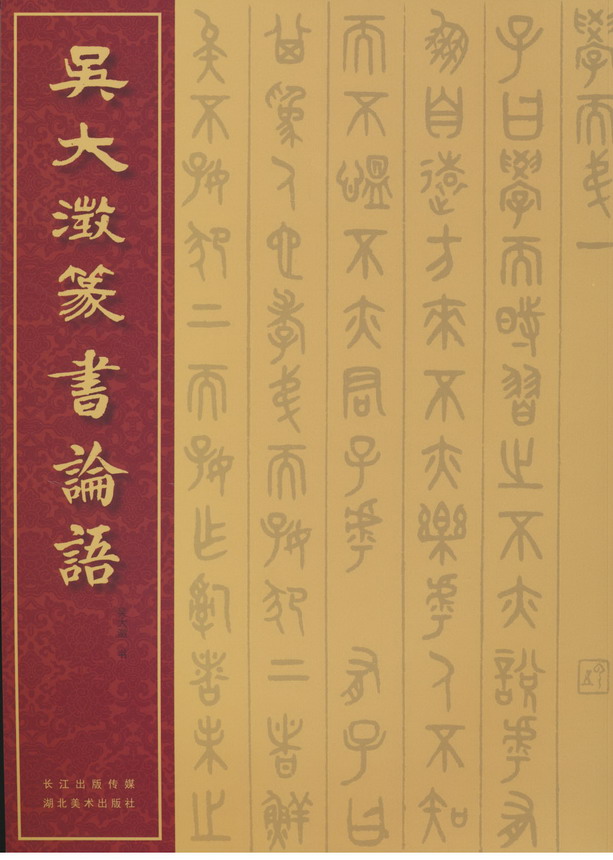 吳大澂篆書論語
长江出版传媒
湖北美术出版社
學而弟一
子曰學而時習之不亦說乎有
朋自遠方來不亦樂乎人不知
而不慍不亦君子乎 有子曰
其為人也孝弟而好犯上者鮮
矣不好犯上而好作亂者未之